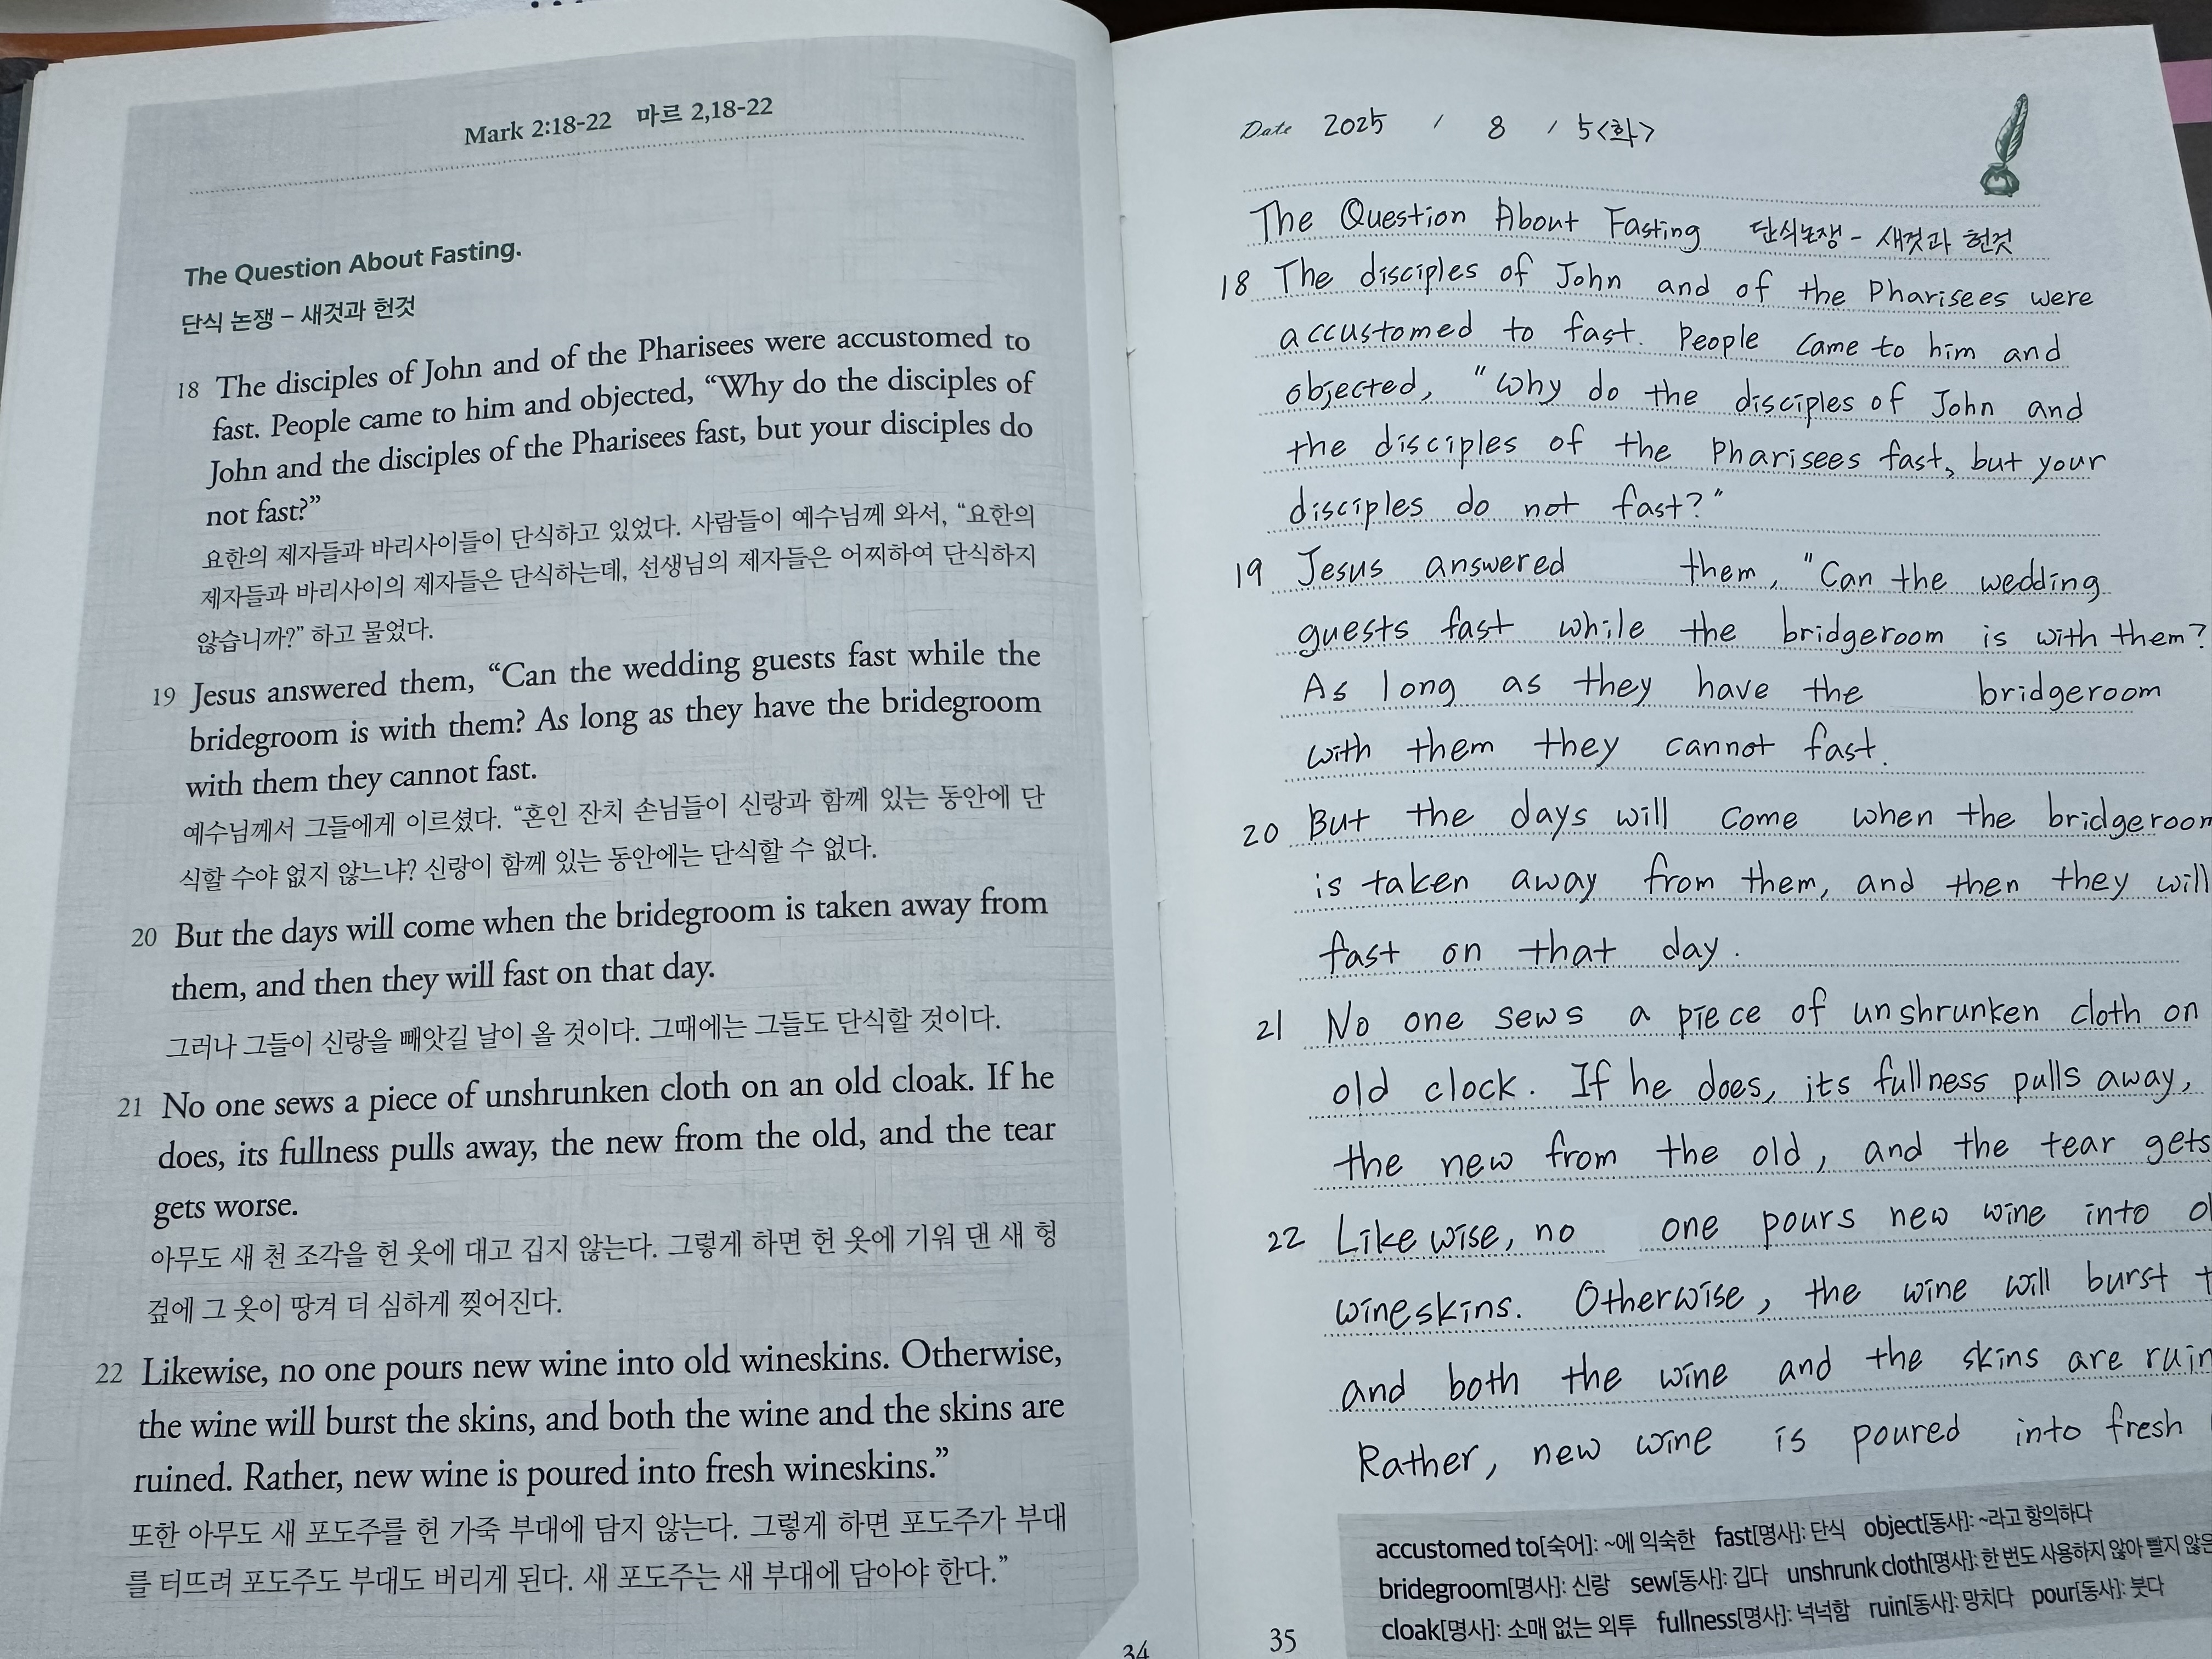 Mark 2:18-22 마르 2,18-22
The Question About Fasting.
단식 논쟁 – 새것과 헌것
18 The disciples of John and of the Pharisees were accustomed to
fast. People came to him and objected, “Why do the disciples of
John and the disciples of the Pharisees fast, but your disciples do
not fast?”
요한의 제자들과 바리사이들이 단식하고 있었다. 사람들이 예수님께 와서, “요한의
제자들과 바리사이의 제자들은 단식하는데, 선생님의 제자들은 어찌하여 단식하지
않습니까?” 하고 물었다.
19 Jesus answered them, “Can the wedding guests fast while the
bridegroom is with them? As long as they have the bridegroom
with them they cannot fast.
예수님께서 그들에게 이르셨다. “혼인 잔치 손님들이 신랑과 함께 있는 동안에 단
식할 수야 없지 않느냐? 신랑이 함께 있는 동안에는 단식할 수 없다.
20 But the days will come when the bridegroom is taken away from
them, and then they will fast on that day.
그러나 그들이 신랑을 빼앗길 날이 올 것이다. 그때에는 그들도 단식할 것이다.
21 No one sews a piece of unshrunken cloth on an old cloak. If he
does, its fullness pulls away, the new from the old, and the tear
gets worse.
아무도 새 천 조각을 헌 옷에 대고 깁지 않는다. 그렇게 하면 헌 옷에 기워 댄 새 헝
겊에 그 옷이 땅겨 더 심하게 찢어진다.
22 Likewise, no one pours new wine into old wineskins. Otherwise,
the wine will burst the skins, and both the wine and the skins are
ruined. Rather, new wine is poured into fresh wineskins.”
또한 아무도 새 포도주를 헌 가죽 부대에 담지 않는다. 그렇게 하면 포도주가 부대
를 터뜨려 포도주도 부대도 버리게 된다. 새 포도주는 새 부대에 담아야 한다.”
34
Date 2025 / 8 / 5<화>
The Question About Fasting 단식논쟁 - 새것과 헌것
18 The disciples of John and of the Pharisees were
accustomed to fast. People came to him and
objected, "Why do the disciples of John and
the disciples of the Pharisees fast, but your
disciples do not fast?"
19 Jesus answered them, "Can the wedding
guests fast while the bridgeroom is with them?
As long as they have the bridgeroom
with them they cannot fast.
20 But the days will come when the bridgeroom
is taken away from them, and then they will
fast on that day.
21 No one sews a piece of unshrunken cloth on
old clock. If he does, its fullness pulls away,
the new from the old, and the tear gets
22 Likewise, no one pours new wine into
wineskins. Otherwise, the wine will burst
and both the wine and the skins are
Rather, new wine is poured into fresh
accustomed to[숙어]: ~에 익숙한 fast[명사]: 단식 object[동사]: ~라고 항의하다
bridegroom[명사]: 신랑 sew[동사]: 깁다 unshrunk cloth[명사]: 한 번도 사용하지 않아 빨지 않은
cloak[명사]: 소매 없는 외투 fullness[명사]: 넉넉함 ruin[동사]: 망치다 pour[동사]: 붓다
35